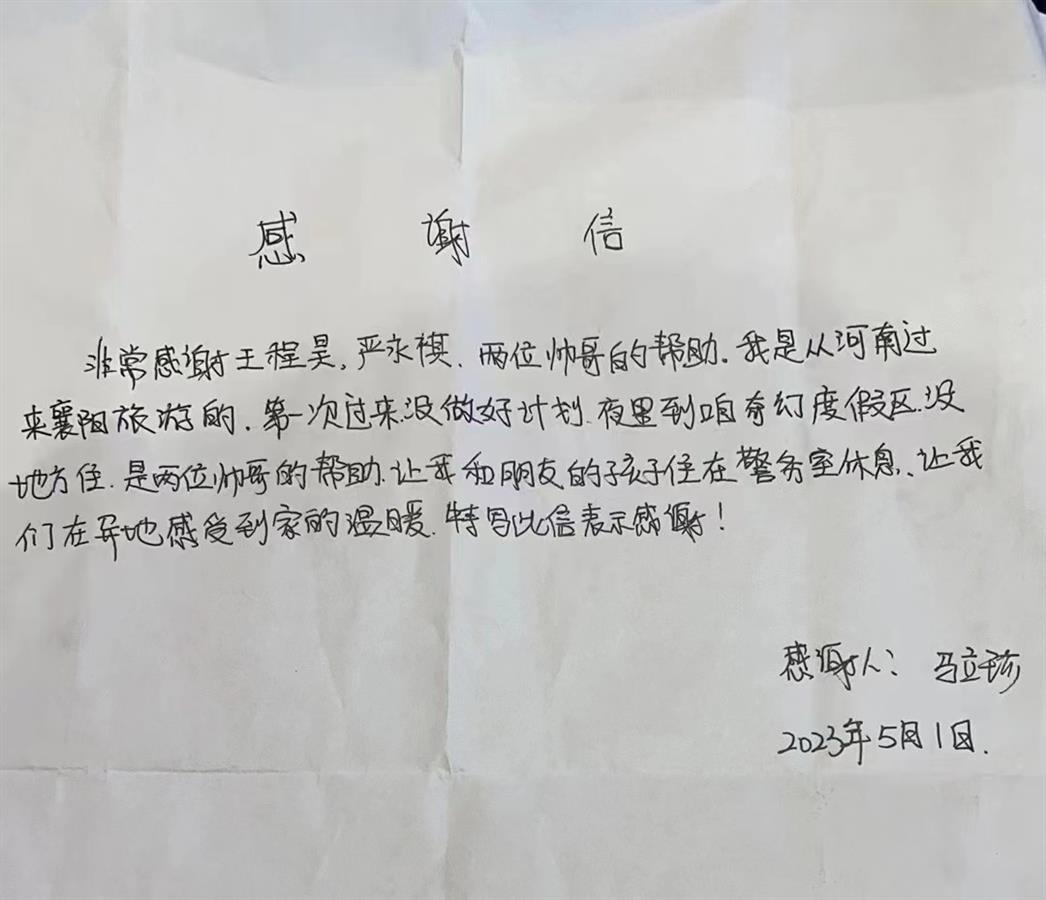 感谢信
非常感谢王程昊,严永祺、两位帅哥的帮助。我是从河南过
来襄阳旅游的、第一次过来没做好计划、夜里到咱奇幻度假区、没
地方住、是两位帅哥的帮助、让我和朋友的孩子住在警务室休息、让我
们在异地感受到家的温暖、特写此信表示感谢!
感谢人:马立莎
2023年5月1日.